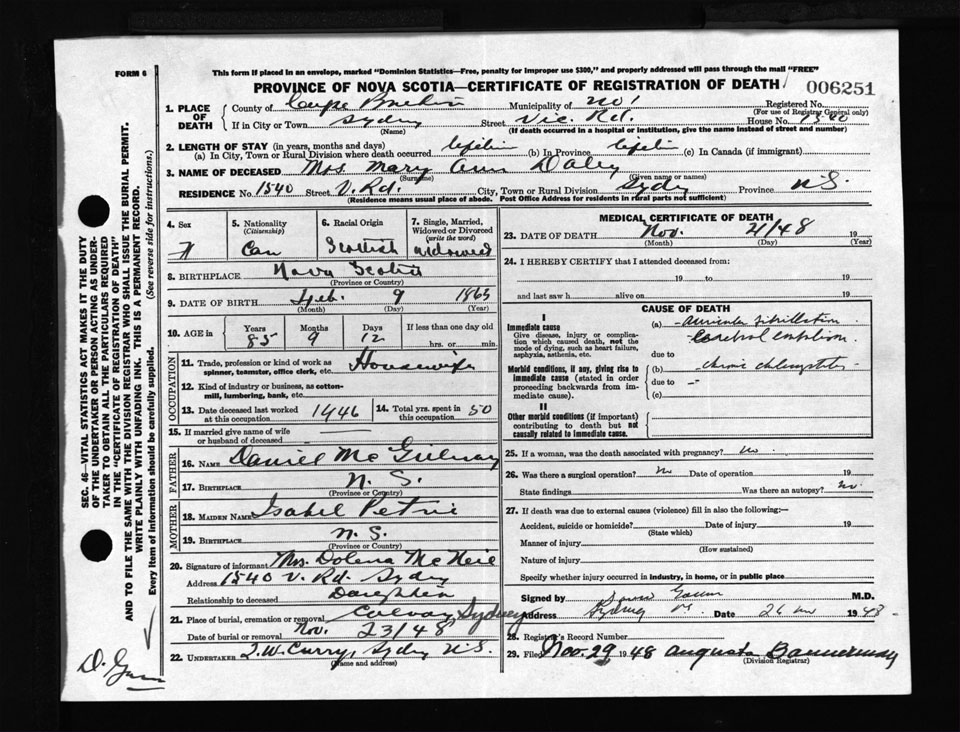 FORM 6
This form if placed in an envelope, marked "Dominion Statistics—Free, penalty for improper use $300," and properly addressed will pass through the mail "FREE"
PROVINCE OF NOVA SCOTIA—CERTIFICATE OF REGISTRATION OF DEATH
006251
1. PLACE OF DEATH County of Cape Breton Municipality of No 1 Registered No.
(For use of Registrar General only)
If in City or Town Sydney Street Vic. Rd. House No. 1540
(Name) (If death occurred in a hospital or institution, give the name instead of street and number)
2. LENGTH OF STAY (in years, months and days)
(a) In City, Town or Rural Division where death occurred lifetime (b) In Province lifetime (c) In Canada (if immigrant)
3. NAME OF DECEASED Mrs. Mary Ann Daley
(Surname) (Given name or names)
RESIDENCE No. 1540 Street V. Rd. City, Town or Rural Division Sydney Province N.S.
(Residence means usual place of abode. Post Office Address for residents in rural parts not sufficient)
4. Sex F
5. Nationality (Citizenship) Can
6. Racial Origin Scottish
7. Single, Married, Widowed or Divorced (write the word) Widowed
8. BIRTHPLACE Nova Scotia
(Province or Country)
9. DATE OF BIRTH Feb. 9 1863
(Month) (Day) (Year)
10. AGE in Years 85 Months 9 Days 12 If less than one day old
hrs. or min.
OCCUPATION
11. Trade, profession or kind of work as spinner, teamster, office clerk, etc. Housewife
12. Kind of industry or business, as cotton-mill, lumbering, bank, etc.
13. Date deceased last worked at this occupation 1946
14. Total yrs. spent in this occupation 50
15. If married give name of wife or husband of deceased
FATHER
16. NAME Daniel Mc Gilvray
17. BIRTHPLACE N. S.
(Province or Country)
MOTHER
18. MAIDEN NAME Isabel Petrie
19. BIRTHPLACE N. S.
(Province or Country)
20. Signature of informant Mrs. Dolena McNeil
Address 1540 V. Rd. Sydney
Relationship to deceased Daughter
21. Place of burial, cremation or removal Calvary Sydney
Date of burial or removal Nov. 23/48
22. UNDERTAKER T.W. Curry, Sydney N.S.
(Name and address)
MEDICAL CERTIFICATE OF DEATH
23. DATE OF DEATH Nov. 21/48 19
(Month) (Day) (Year)
24. I HEREBY CERTIFY that I attended deceased from:
19 to 19
and last saw h alive on 19
CAUSE OF DEATH
I
Immediate cause
Give disease, injury or complication which caused death, not the mode of dying, such as heart failure, asphyxia, asthenia, etc.
(a) Auricular fibrillation
Cerebral embolism
due to
Morbid conditions, if any, giving rise to immediate cause (stated in order proceeding backwards from immediate cause).
(b) chronic cholecystitis
due to
(c)
II
Other morbid conditions (if important) contributing to death but not causally related to immediate cause.
25. If a woman, was the death associated with pregnancy? no
26. Was there a surgical operation? No Date of operation 19
State findings Was there an autopsy? No
27. If death was due to external causes (violence) fill in also the following:—
Accident, suicide or homicide? Date of injury 19
(State which)
Manner of injury
(How sustained)
Nature of injury
Specify whether injury occurred in industry, in home, or in public place
Signed by M.D.
Address Sydney Date 26 Nov 1948
28. Registrar's Record Number
29. Filed Nov. 29 1948 Augusta Bannerman
(Division Registrar)
SEC. 46—VITAL STATISTICS ACT MAKES IT THE DUTY
OF THE UNDERTAKER OR PERSON ACTING AS UNDERTAKER TO OBTAIN ALL THE PARTICULARS REQUIRED
IN THE "CERTIFICATE OF REGISTRATION OF DEATH"
AND TO FILE THE SAME WITH THE DIVISION REGISTRAR WHO SHALL ISSUE THE BURIAL PERMIT.
WRITE PLAINLY WITH UNFADING INK. THIS IS A PERMANENT RECORD.
Every item of information should be carefully supplied. (See reverse side for instructions.)